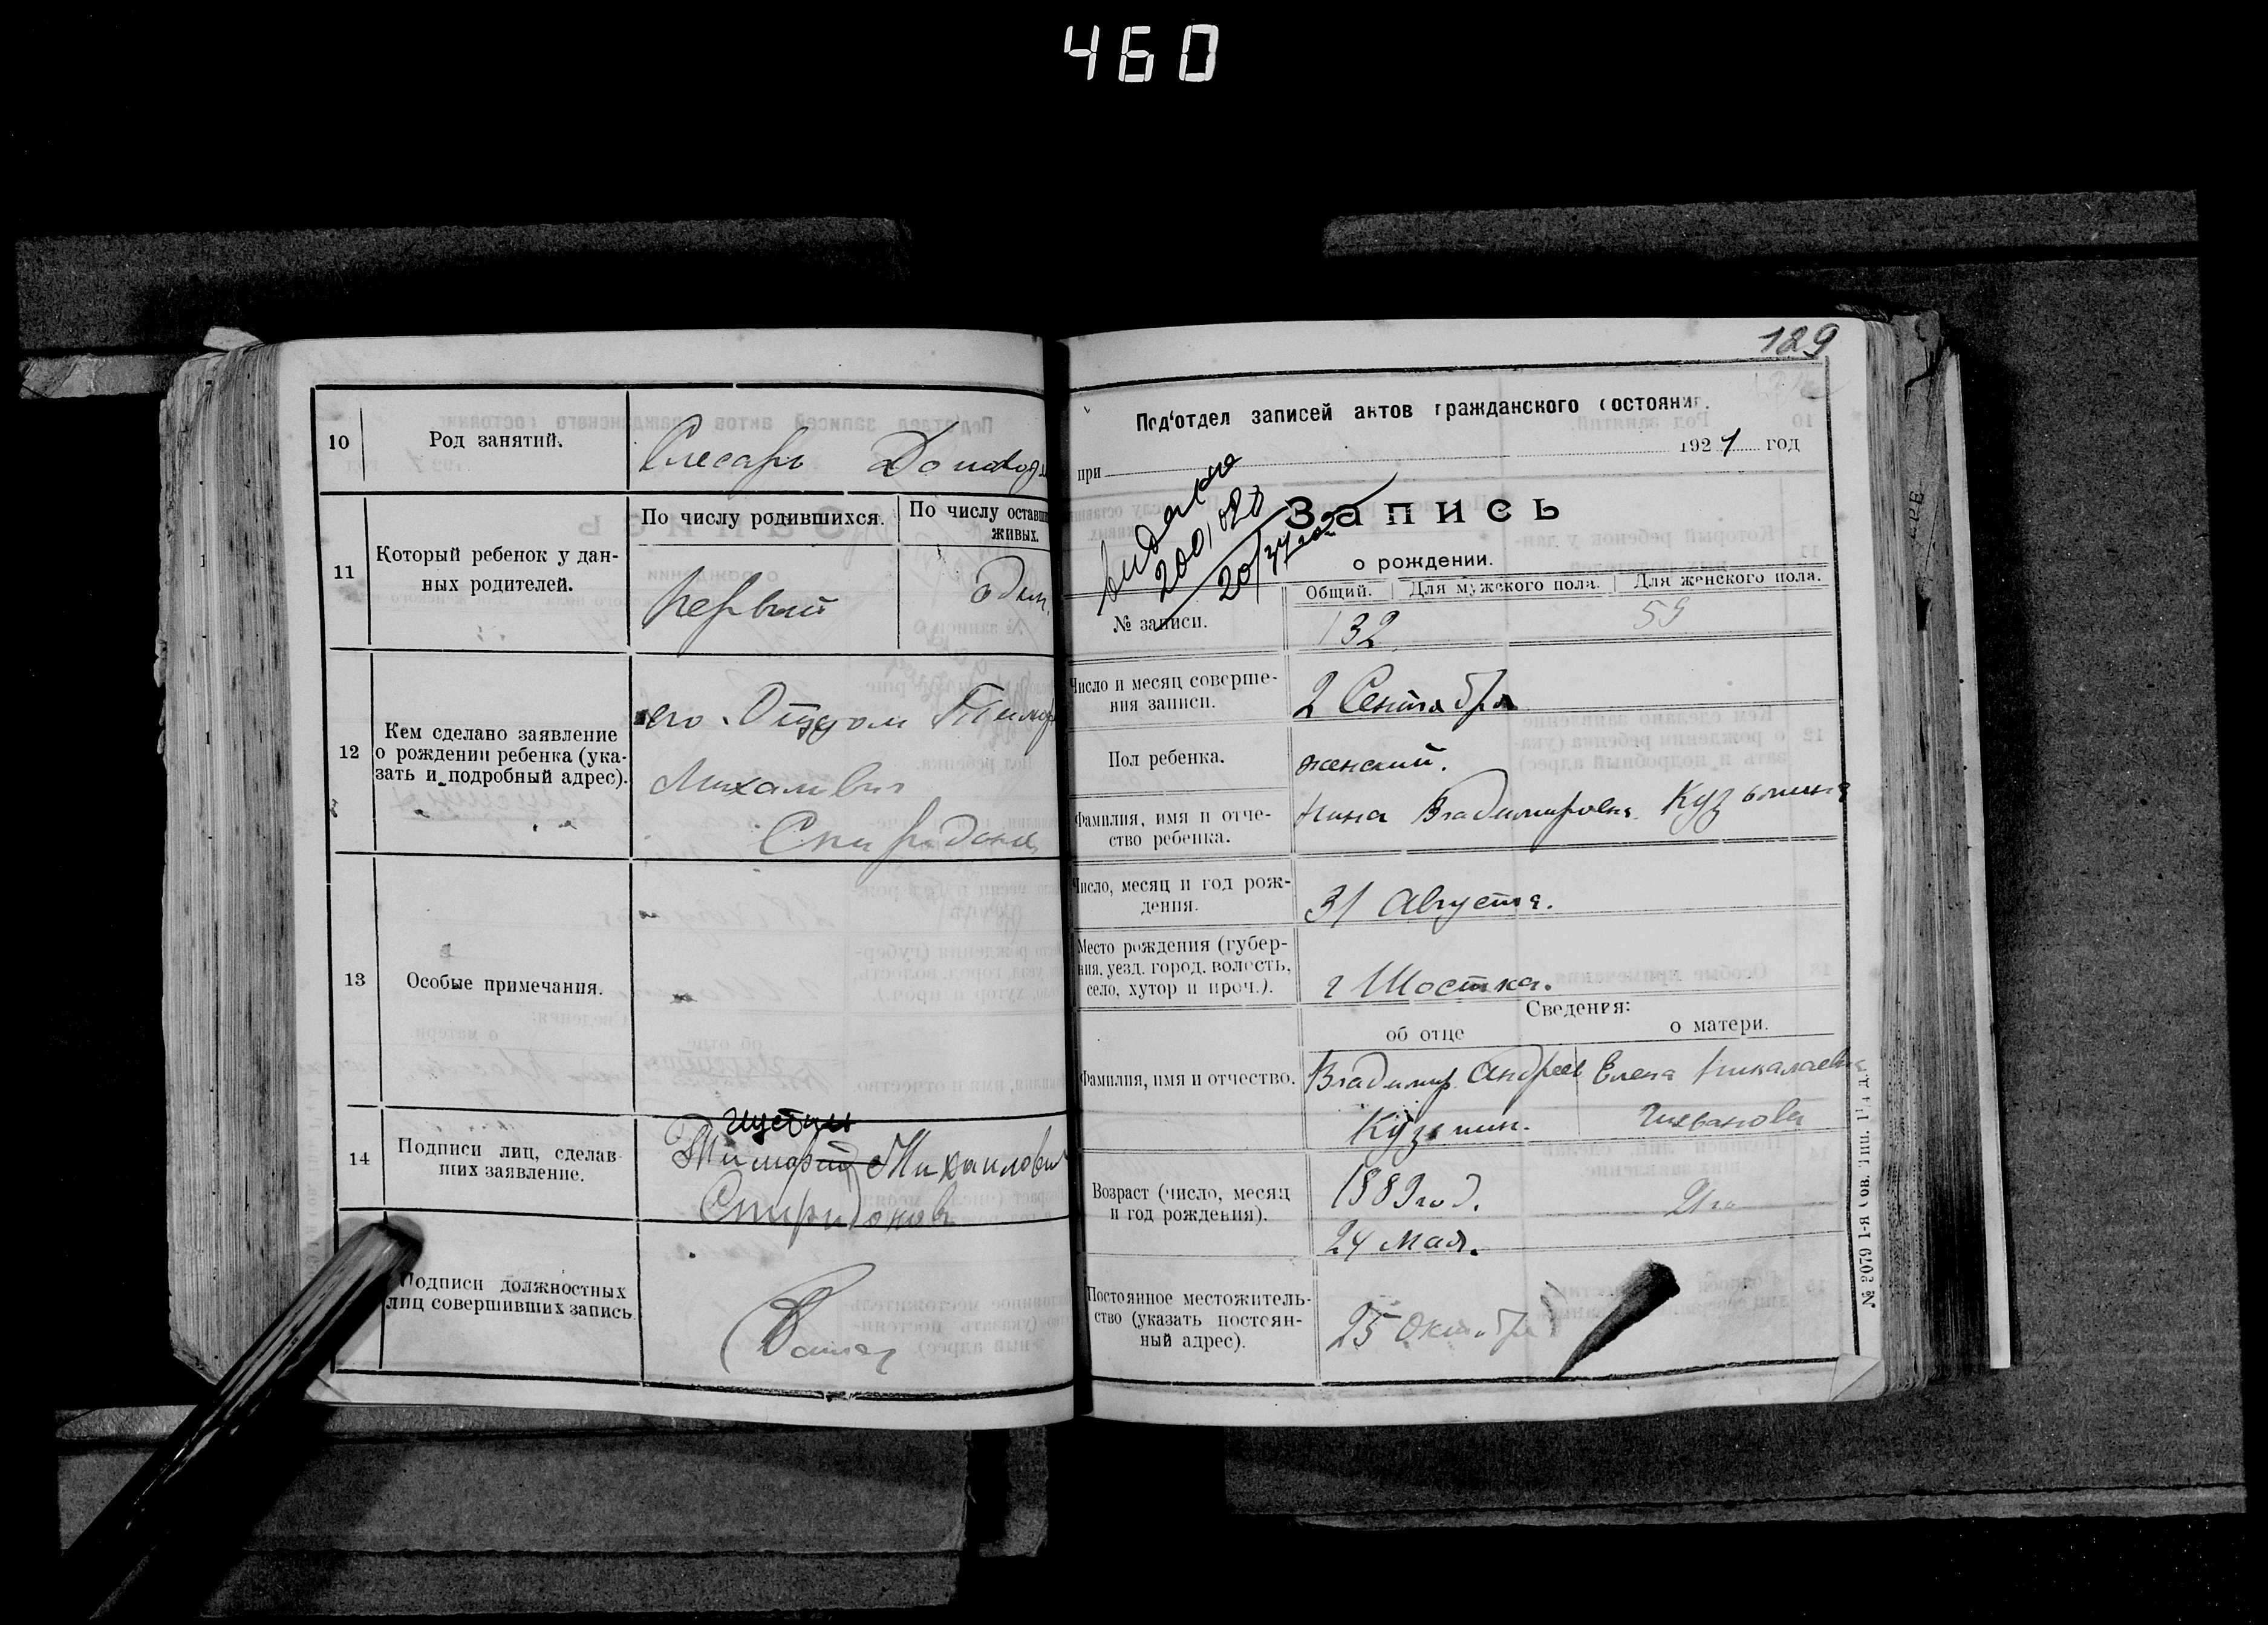 460
10
Род занятий.
Слесарь
11
Который ребенок у дан-
ных родителей.
По числу родившихся.
По числу оставш
живых.
Первый
один.
12
Кем сделано заявление
о рождении ребенка (ука-
зать и подробный адрес).
его Отцом Тимоф
Михалович
Спиридонов
13
Особые примечания.
14
Подписи лиц, сделав
ших заявление.
Тимофей Михаилович
Спиридонов
Подписи должностных
лиц совершивших запись
129
Под'отдел записей актов гражданского состояния.
при
1921 год
Запись
о рождении.
Общий.
Для мужского пола.
Для женского пола.
№ записи.
132
59
Число и месяц соверше-
ния записи.
2 Сентября
Пол ребенка.
женский.
Фамилия, имя и отче-
ство ребенка.
Нина Владимировна Кузьмина
Число, месяц и год рож-
дения.
31 Августа.
Место рождения (губер-
ния, уезд, город, волость,
село, хутор и проч.).
г Шостка.
Сведения:
об отце
о матери.
Фамилия, имя и отчество.
Владимир Андреев
Елена Николаевна
Кузьмин.
Возраст (число, месяц
и год рождения).
1889 год.
24 Мая.
Постоянное местожитель-
ство (указать постоян-
ный адрес).
25 Октября